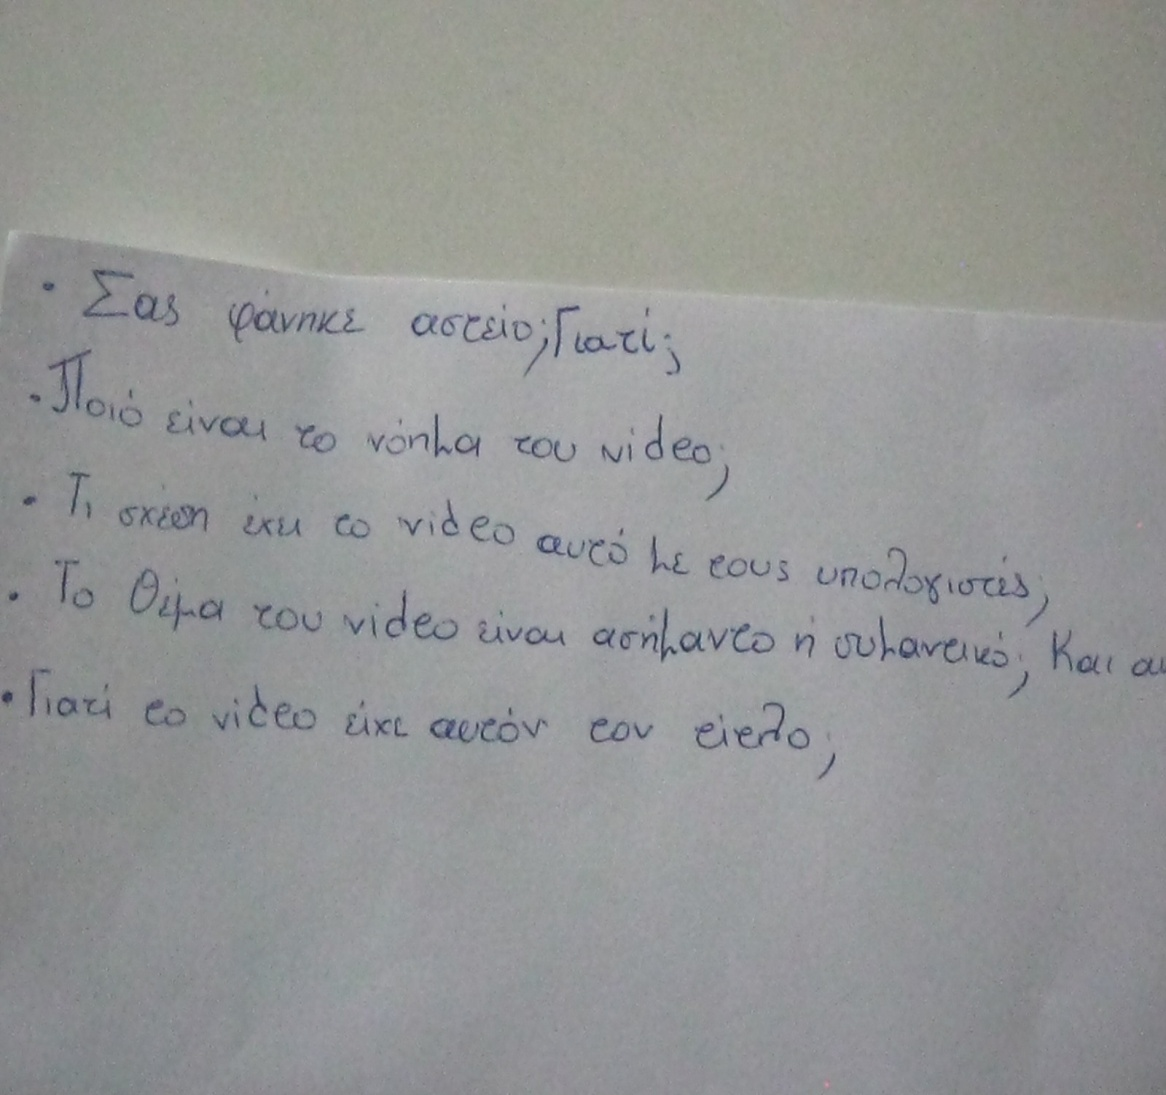 · Σας φάνηκε αστείο; Γιατί;
· Ποιό είναι το νόημα του video;
· Τι σχέση έχει το video αυτό με τους υπολογιστές;
· Το θέμα του video είναι ασήμαντο ή συμαντικό; Και
· Γιατί το video είχε αυτόν τον τίτλο;